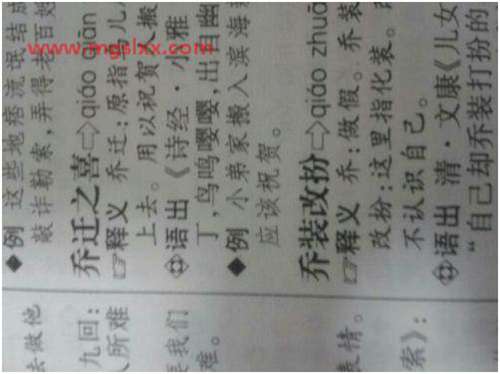 www.mgslxx.com
例 这些地痞流氓结成
敲诈勒索,弄得老百姓
乔迁之喜 qiáo qiān
释义 乔迁:原指鸟儿
上去。用以祝贺人搬
语出 《诗经·小雅
丁,鸟鸣嘤嘤,出自幽
例 小弟家搬入滨海
应该祝贺。
乔装改扮 qiáo zhuā
释义 乔:做假。乔装
改扮:这里指化装。
不认识自己。
语出 清·文康《儿女
“自己却乔装打扮的
去做他
九回:
人所难
我们
难。
表情。
索》: